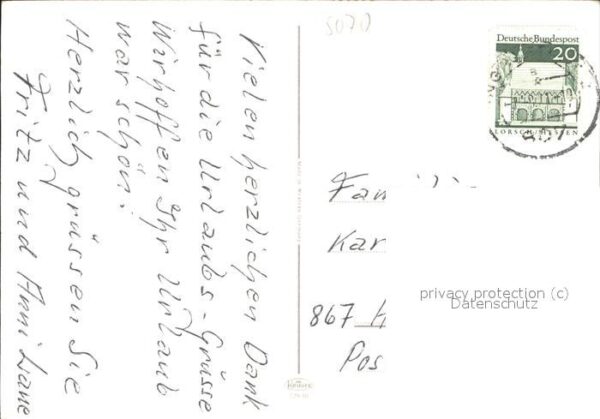 Vielen herzlichen Dank
für die Urlaubs-Grüsse
Wir hoffen Ihr Urlaub
war schön!
Herzlich grüssen Sie
Fritz und Anni
5020
Deutsche Bundespost
20
LORSCH/HESSEN
Fam
Kar
867 H
Pos
privacy protection (c)
Datenschutz